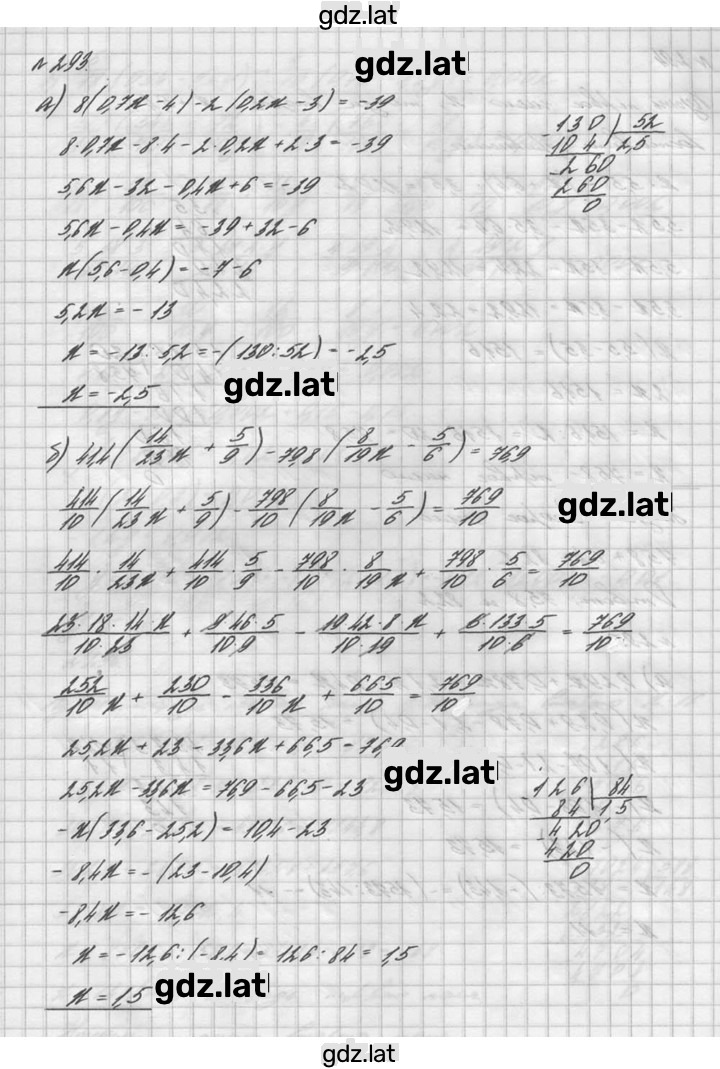 gdz.lat
№293.
gdz.lat
а) 8(0,7x-4)-2(0,2x-3)=-39
8·0,7x-8·4-2·0,2x+2·3=-39
5,6x-32-0,4x+6=-39
5,6x-0,4x=-39+32-6
x(5,6-0,4)=-7-6
5,2x=-13
x=-13:5,2=-(130:52)=-2,5
x=-2,5
130 | 52
104 | 2,5
260
260
0
gdz.lat
б) 41,4(14/23 x + 5/9)-79,8(8/19 x - 5/6)=76,9
414/10(14/23 x + 5/9)-798/10(8/19 x - 5/6)=769/10
gdz.lat
414/10 · 14/23 x + 414/10 · 5/9 - 798/10 · 8/19 x + 798/10 · 5/6 = 769/10
23·18·14·x/10·23 + 9·46·5/10·9 - 19·42·8·x/10·19 + 6·133·5/10·6 = 769/10
252/10 x + 230/10 - 336/10 x + 665/10 = 769/10
25,2x+23-33,6x+66,5=76,9
gdz.lat
25,2x-33,6x=76,9-66,5-23
-x(33,6-25,2)=10,4-23
-8,4x=-(23-10,4)
-8,4x=-12,6
x=-12,6:(-8,4)=126:84=1,5
x=1,5
126 | 84
84 | 1,5
420
420
0
gdz.lat
gdz.lat